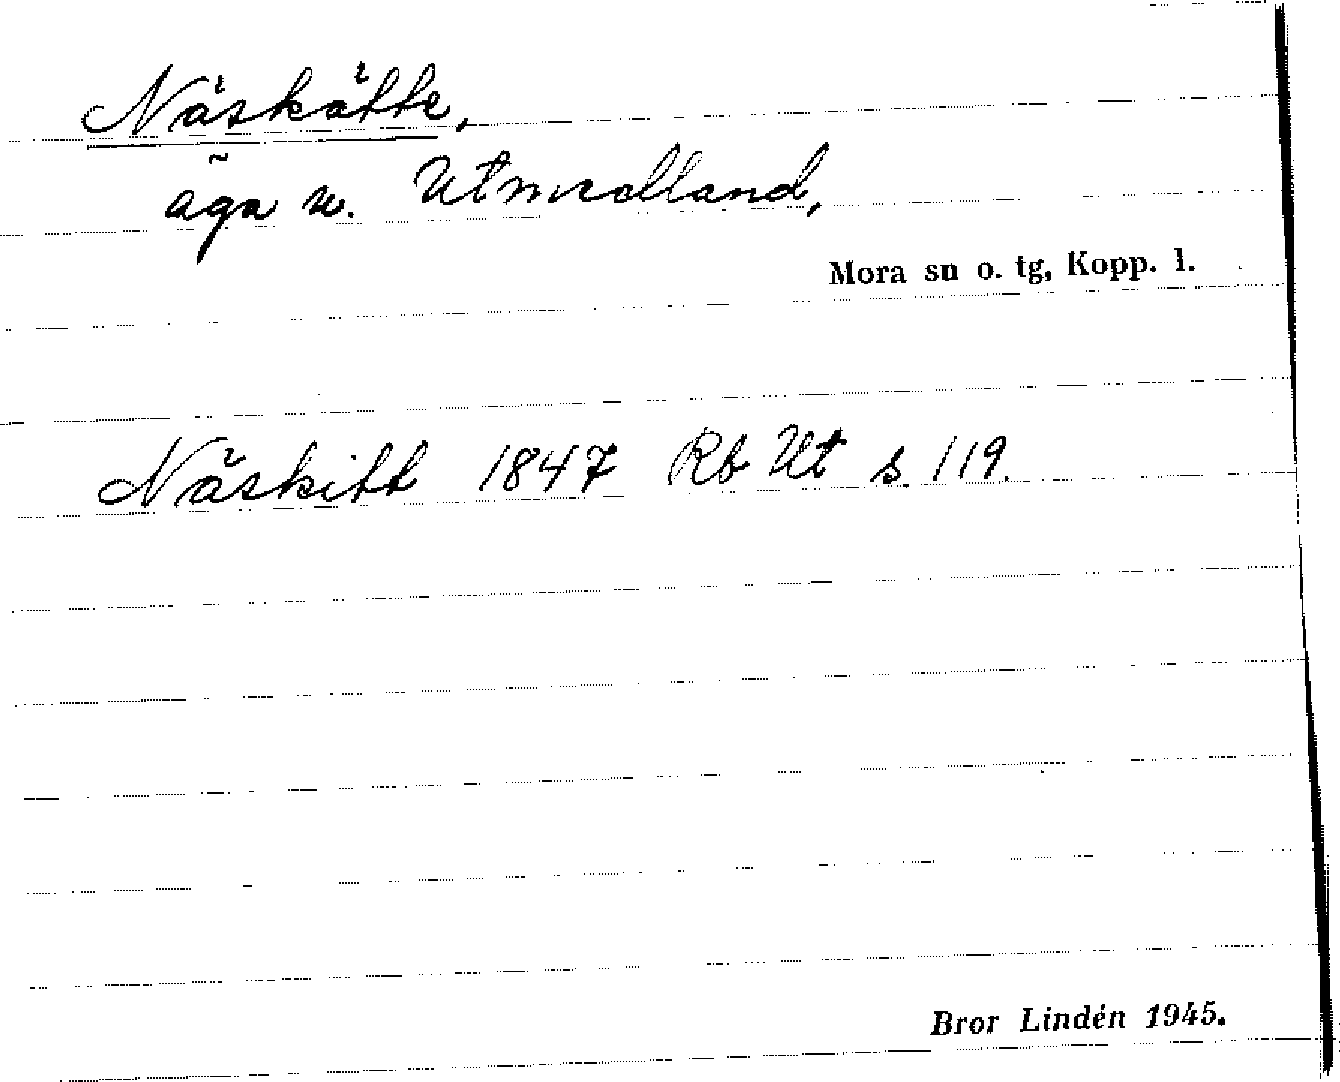 Näskätte,
äga n. Utmedland,
Mora sn o. tg, Kopp. l.
Näskitt 1847 Rb Ut s. 119.
Bror Lindén 1945.